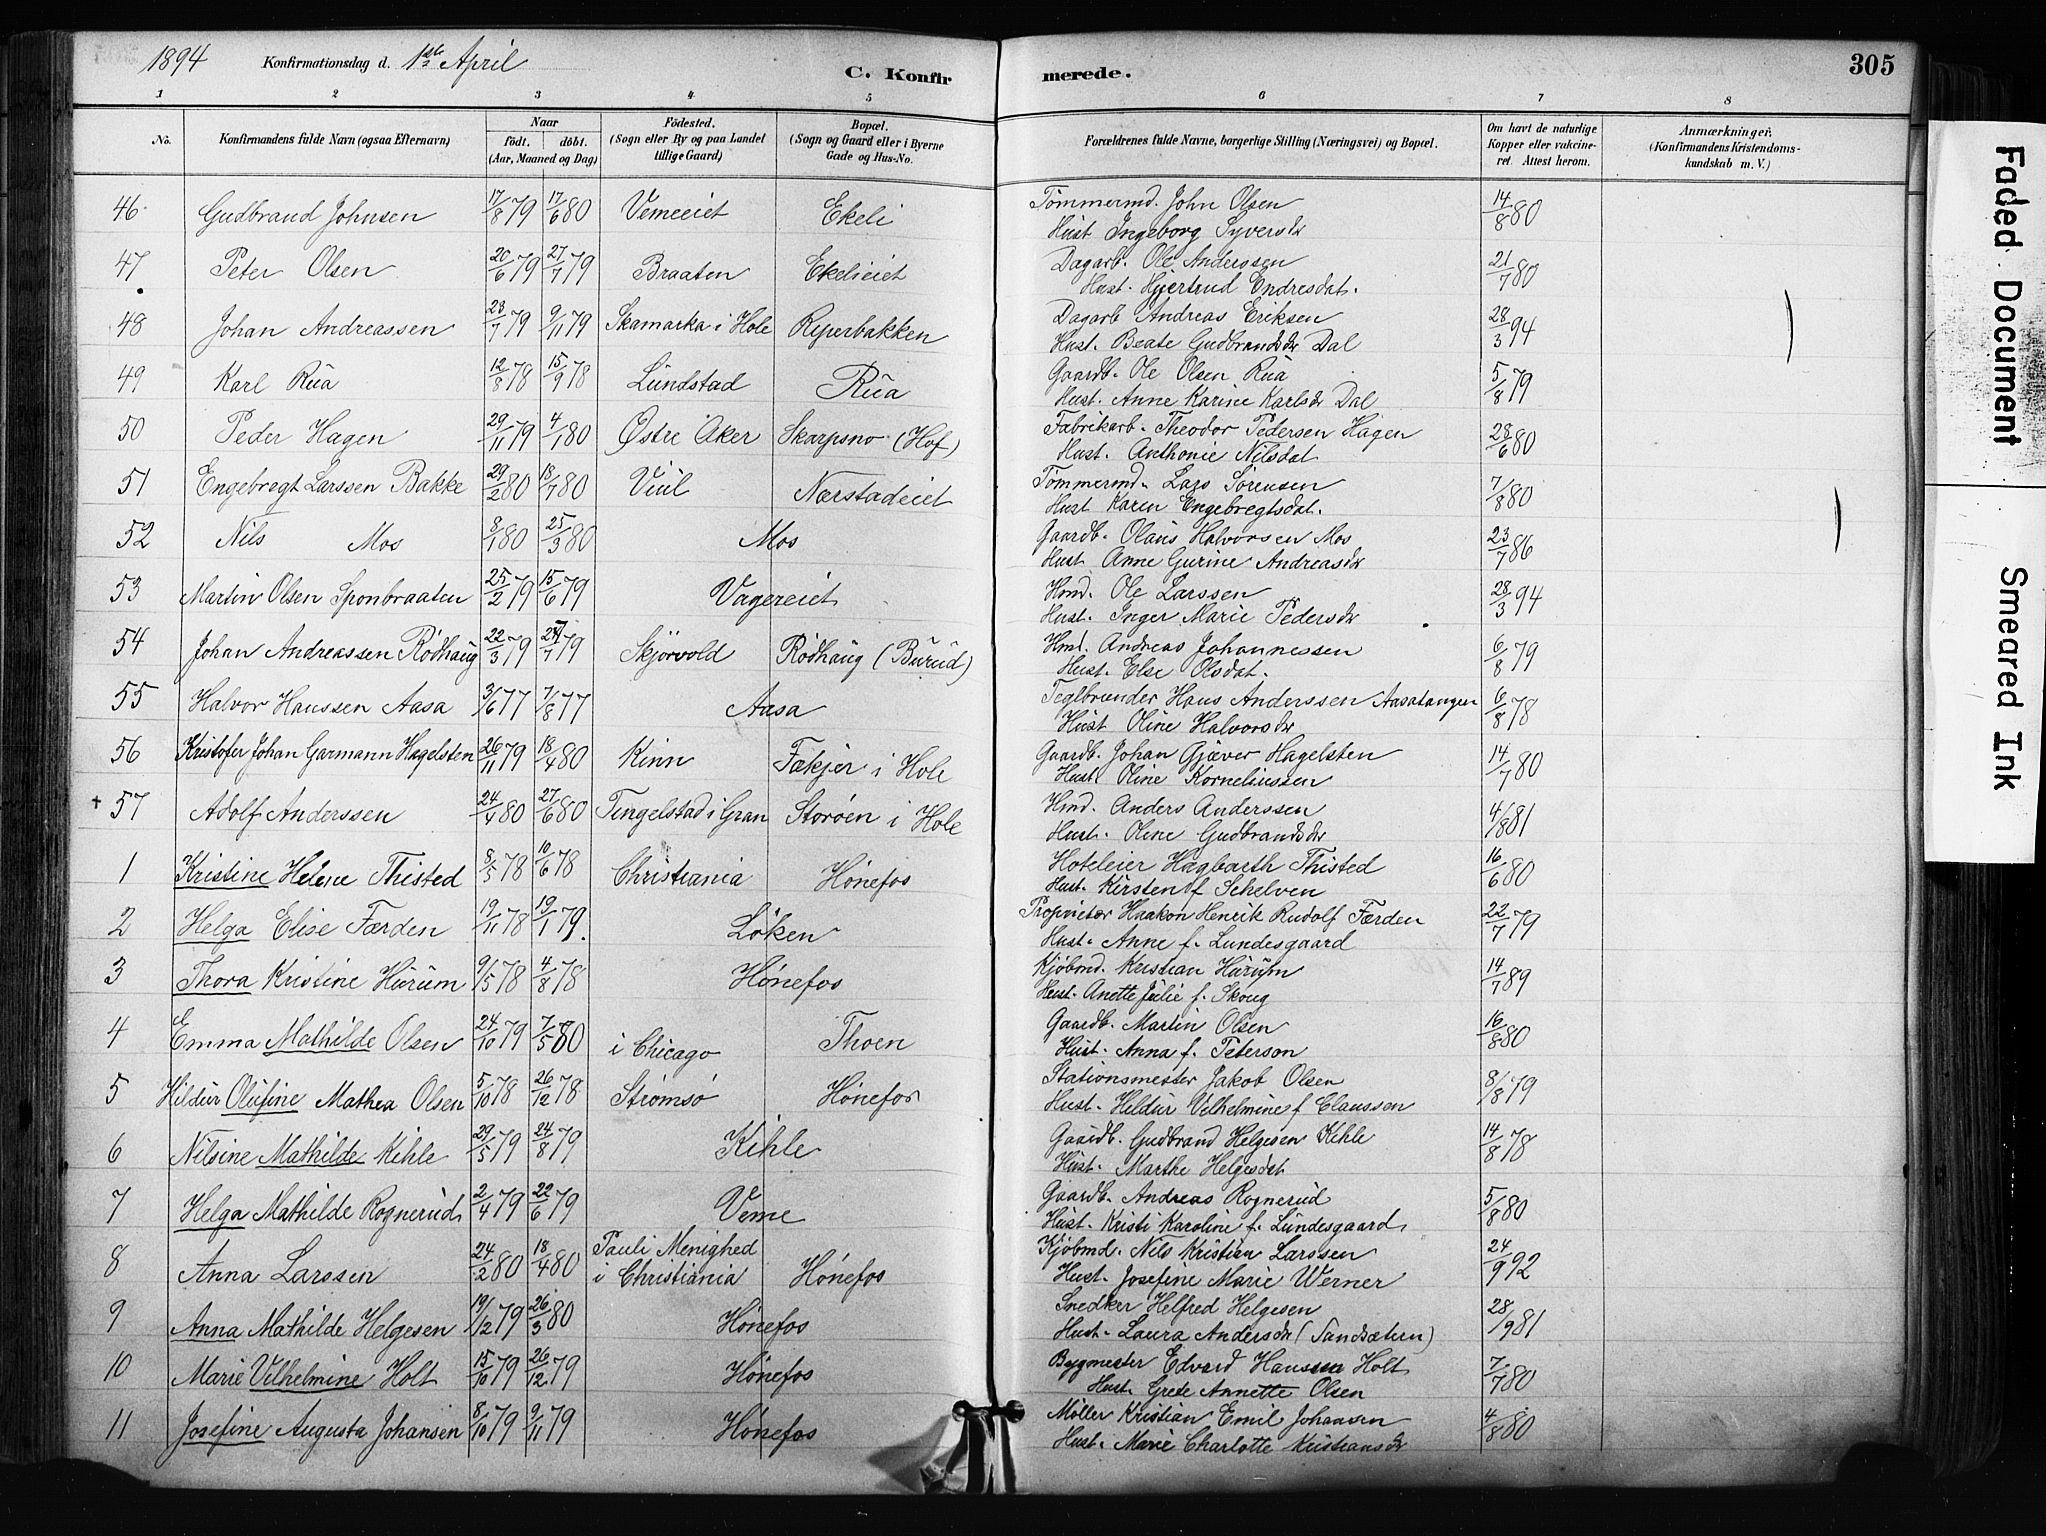 1894 Konfirmationsdag d. 1ste April C. Konfirmerede. 305
1 2 3 4 5 6 7 8
No. Konfirmandens fulde Navn (ogsaa Efternavn) Naar født. døbt. (Aar, Maaned og Dag) Fødested. (Sogn eller By og paa Landet tillige Gaard) Bopæl. (Sogn og Gaard eller i Byerne Gade og Hus-No. Forældrenes fulde Navne, borgerlige Stilling (Næringsvei) og Bopæl. Om havt de naturlige Kopper eller vakcineret. Attest herom. Anmærkninger. (Konfirmandens Kristendomskundskab m. V.)
46 Gudbrand Johnsen 17/8 79 17/6 80 Vemeeiet Ekeli Tømmermd. John Olsen 14/8 80
Hust Ingeborg Syversdr
47 Peter Olsen 20/6 79 27/7 79 Braaten Ekelieiet Dagarb. Ole Anderssen 21/7 80
Hust. Hjertrud Endresdat.
48 Johan Andreassen 23/7 79 9/11 79 Skamarka i Hole Ryperbakken Dagarb Andreas Eriksen 28/3 94
Hust. Beate Gudbrandsdr Dal
49 Karl Rua 12/8 78 15/9 78 Lundstad Rua Gaardb. Ole Olsen Rua 5/8 79
Hust. Anne Karine Karlsdr Dal
50 Peder Hagen 29/11 79 4/1 80 Østre Aker Skarpsno (Hof) Fabrikarb. Theodor Pedersen Hagen 28/6 80
Hust. Anthonie Nilsdat
51 Engebregt Larssen Bakke 29/2 80 18/7 80 Viul Nærstadeiet Tømmermd. Lars Sørensen 7/8 80
Hust Karen Engebregtsdat.
52 Nils Mos 8/1 80 25/3 80 Mos Gaardb. Olaus Halvorsen Mos 23/7 86
Hust Anne Gurine Andreasdr
53 Martin Olsen Sponbraaten 25/2 79 15/6 79 Vagereiet Hmd. Ole Larssen 28/3 94
Hust. Inger Marie Pedersdr
54 Johan Andreassen Rødhaug 22/3 79 27/7 79 Skjørvold Rødhaug (Burud) Hmd. Andreas Johannessen 6/8 79
Hust. Else Olsdat.
55 Halvor Hanssen Aasa 3/6 77 7/8 77 Aasa Teglbrænder Hans Anderssen Aasatangen 6/8 78
Hust Oline Halvorsdr
56 Kristofer Johan Garmann Hagelsten 26/11 79 18/4 80 Kinn Fækjer i Hole Gaardb. Johan Gjæver Hagelsten 14/7 80
Hust. Oline Korneliussen
+ 57 Adolf Anderssen 24/4 80 27/6 80 Tingelstad i Gran Storøen i Hole Hmd. Anders Anderssen 4/8 81
Hust. Oline Gudbrandsdr
1 Kristine Helene Thisted 8/5 78 10/6 78 Christiania Hønefos Hoteleier Hagbarth Thisted 16/6 80
Hust. Kirsten f Schelven
2 Helga Elise Færden 19/11 78 19/1 79. Løken Proprietær Haakon Henrik Rudolf Færden 22/7 79
Hust. Anne f. Lundesgaard
3 Thora Kristine Hurum 9/5 78 4/8 78 Hønefos Kjøbmd. Kristian Hurum 14/7 89
Hust. Anette Julie f. Skoug
4 Emma Mathilde Olsen 24/10 79 7/5 80 i Chicago Thoen Gaardb. Martin Olsen 16/8 80
Hust. Anna f. Peterson
5 Hildur Olufine Mathea Olsen 5/10 78 26/12 78 Strømsø Hønefos Stationsmester Jakob Olsen 8/8 79
Hust. Hildur Vilhelmine f Claussen
6 Nilsine Mathilde Kihle 29/5 79 24/8 79 Kihle Gaardb. Gudbrand Helgesen Kihle 14/8 78
Hust. Marthe Helgesdat
7 Helga Mathilde Rognerud 2/4 79 22/6 79 Veme Gaardb. Andreas Rognerud 5/8 80
Hust. Kristi Karoline f. Lundesgaard
8 Anna Larssen 24/2 80 18/4 80 Pauli Menighed i Christiania Hønefos Kjøbmd. Nils Kristian Larssen 24/9 92
Hust. Josefine Marie Werner
9 Anna Mathilde Helgesen 19/12 79 26/3 80 Hønefos Snedker Helfred Helgesen 28/9 81
Hust. Laura Andersdr (Sandsætern)
10 Marie Vilhelmine Holt 15/10 79 26/12 79 Hønefos Bygmester Edvard Hanssen Holt 7/7 80
Hust. Grete Annette Olsen
11 Josefine Augusta Johansen 8/10 79 9/11 79 Hønefos Møller Kristian Emil Johansen 4/8 80
Hust. Marie Charlotte Kristiansdr
Faded Document
Smeared Ink